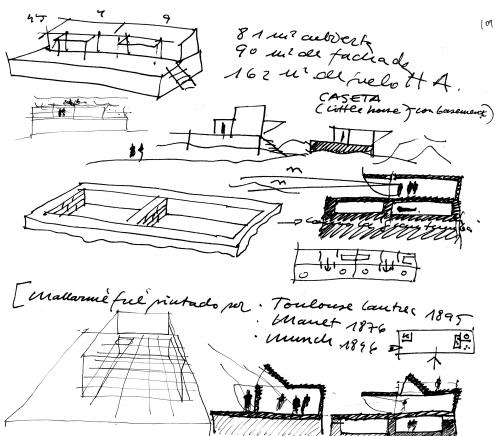 4,5 4 9
81 m² cubierta
90 m² de fachada
162 m² de suelo H.A.
CASETA
(little house) con basement)
[Mallarmé fué pintado por · Toulouse Lautrec 1895
· Manet 1876
· Munch 1896